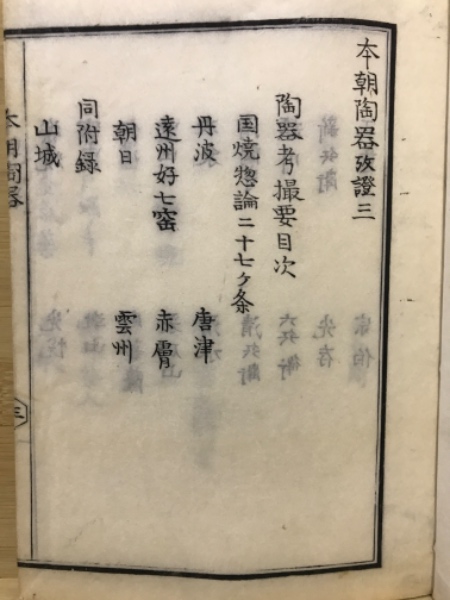 本朝陶器攷證三
陶器考撮要目次
国焼惣論二十七ケ条
丹波 唐津
遠州好七窑 赤膚
朝日 雲州
同附録
山城
本朝陶器
三